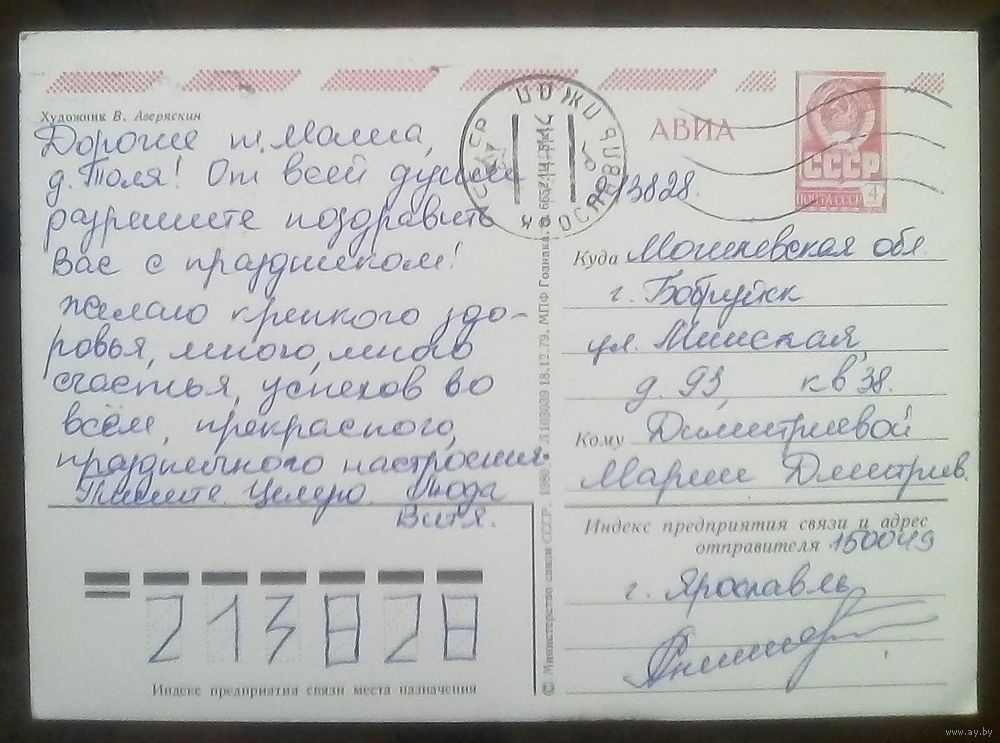 Художник В. Аверяскин
Дорогие т. Маша,
д. Толя! От всей души
разрешите поздравить
Вас с праздником!
Желаю крепкого здо-
ровья, много, много
счастья, успехов во
всём, прекрасного,
праздничного настроения.
Пишите. Целую. Люда
Витя.
АВИА
СССР
4
213828.
Куда Могилевская обл.
г. Бобруйск
ул. Минская,
д. 93, кв 38.
Кому Димитриевой
Марии Дмитриев.
Индекс предприятия связи и адрес
отправителя 150049
г. Ярославль
213828
Индекс предприятия связи места назначения
© Министерство связи СССР, 1980. Л103039 18.12.79. МПФ Гознака.
www.ay.by